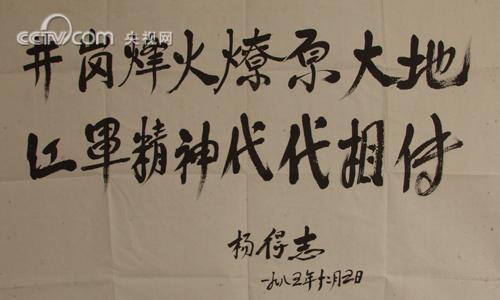 cctv.com 央视网
井岗烽火燎原大地
红军精神代代相传
杨得志
一九八五年十二月五日